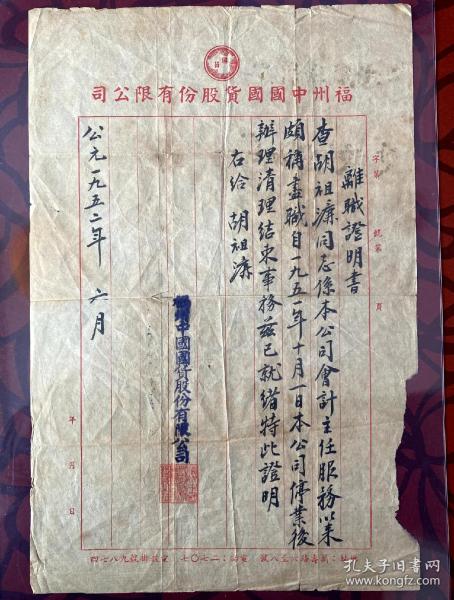 福州中國國貨股份有限公司
字第 號第 頁
離職證明書
查胡祖濂同志係本公司會計主任服務以來
頗稱盡職自一九五一年十月一日本公司停業後
辦理清理結束事務茲已就緒特此證明
右給 胡祖濂
福州中國國貨股份有限公司
公元一九五二年 六月
年 月 日
孔夫子旧书网
kongfz.com